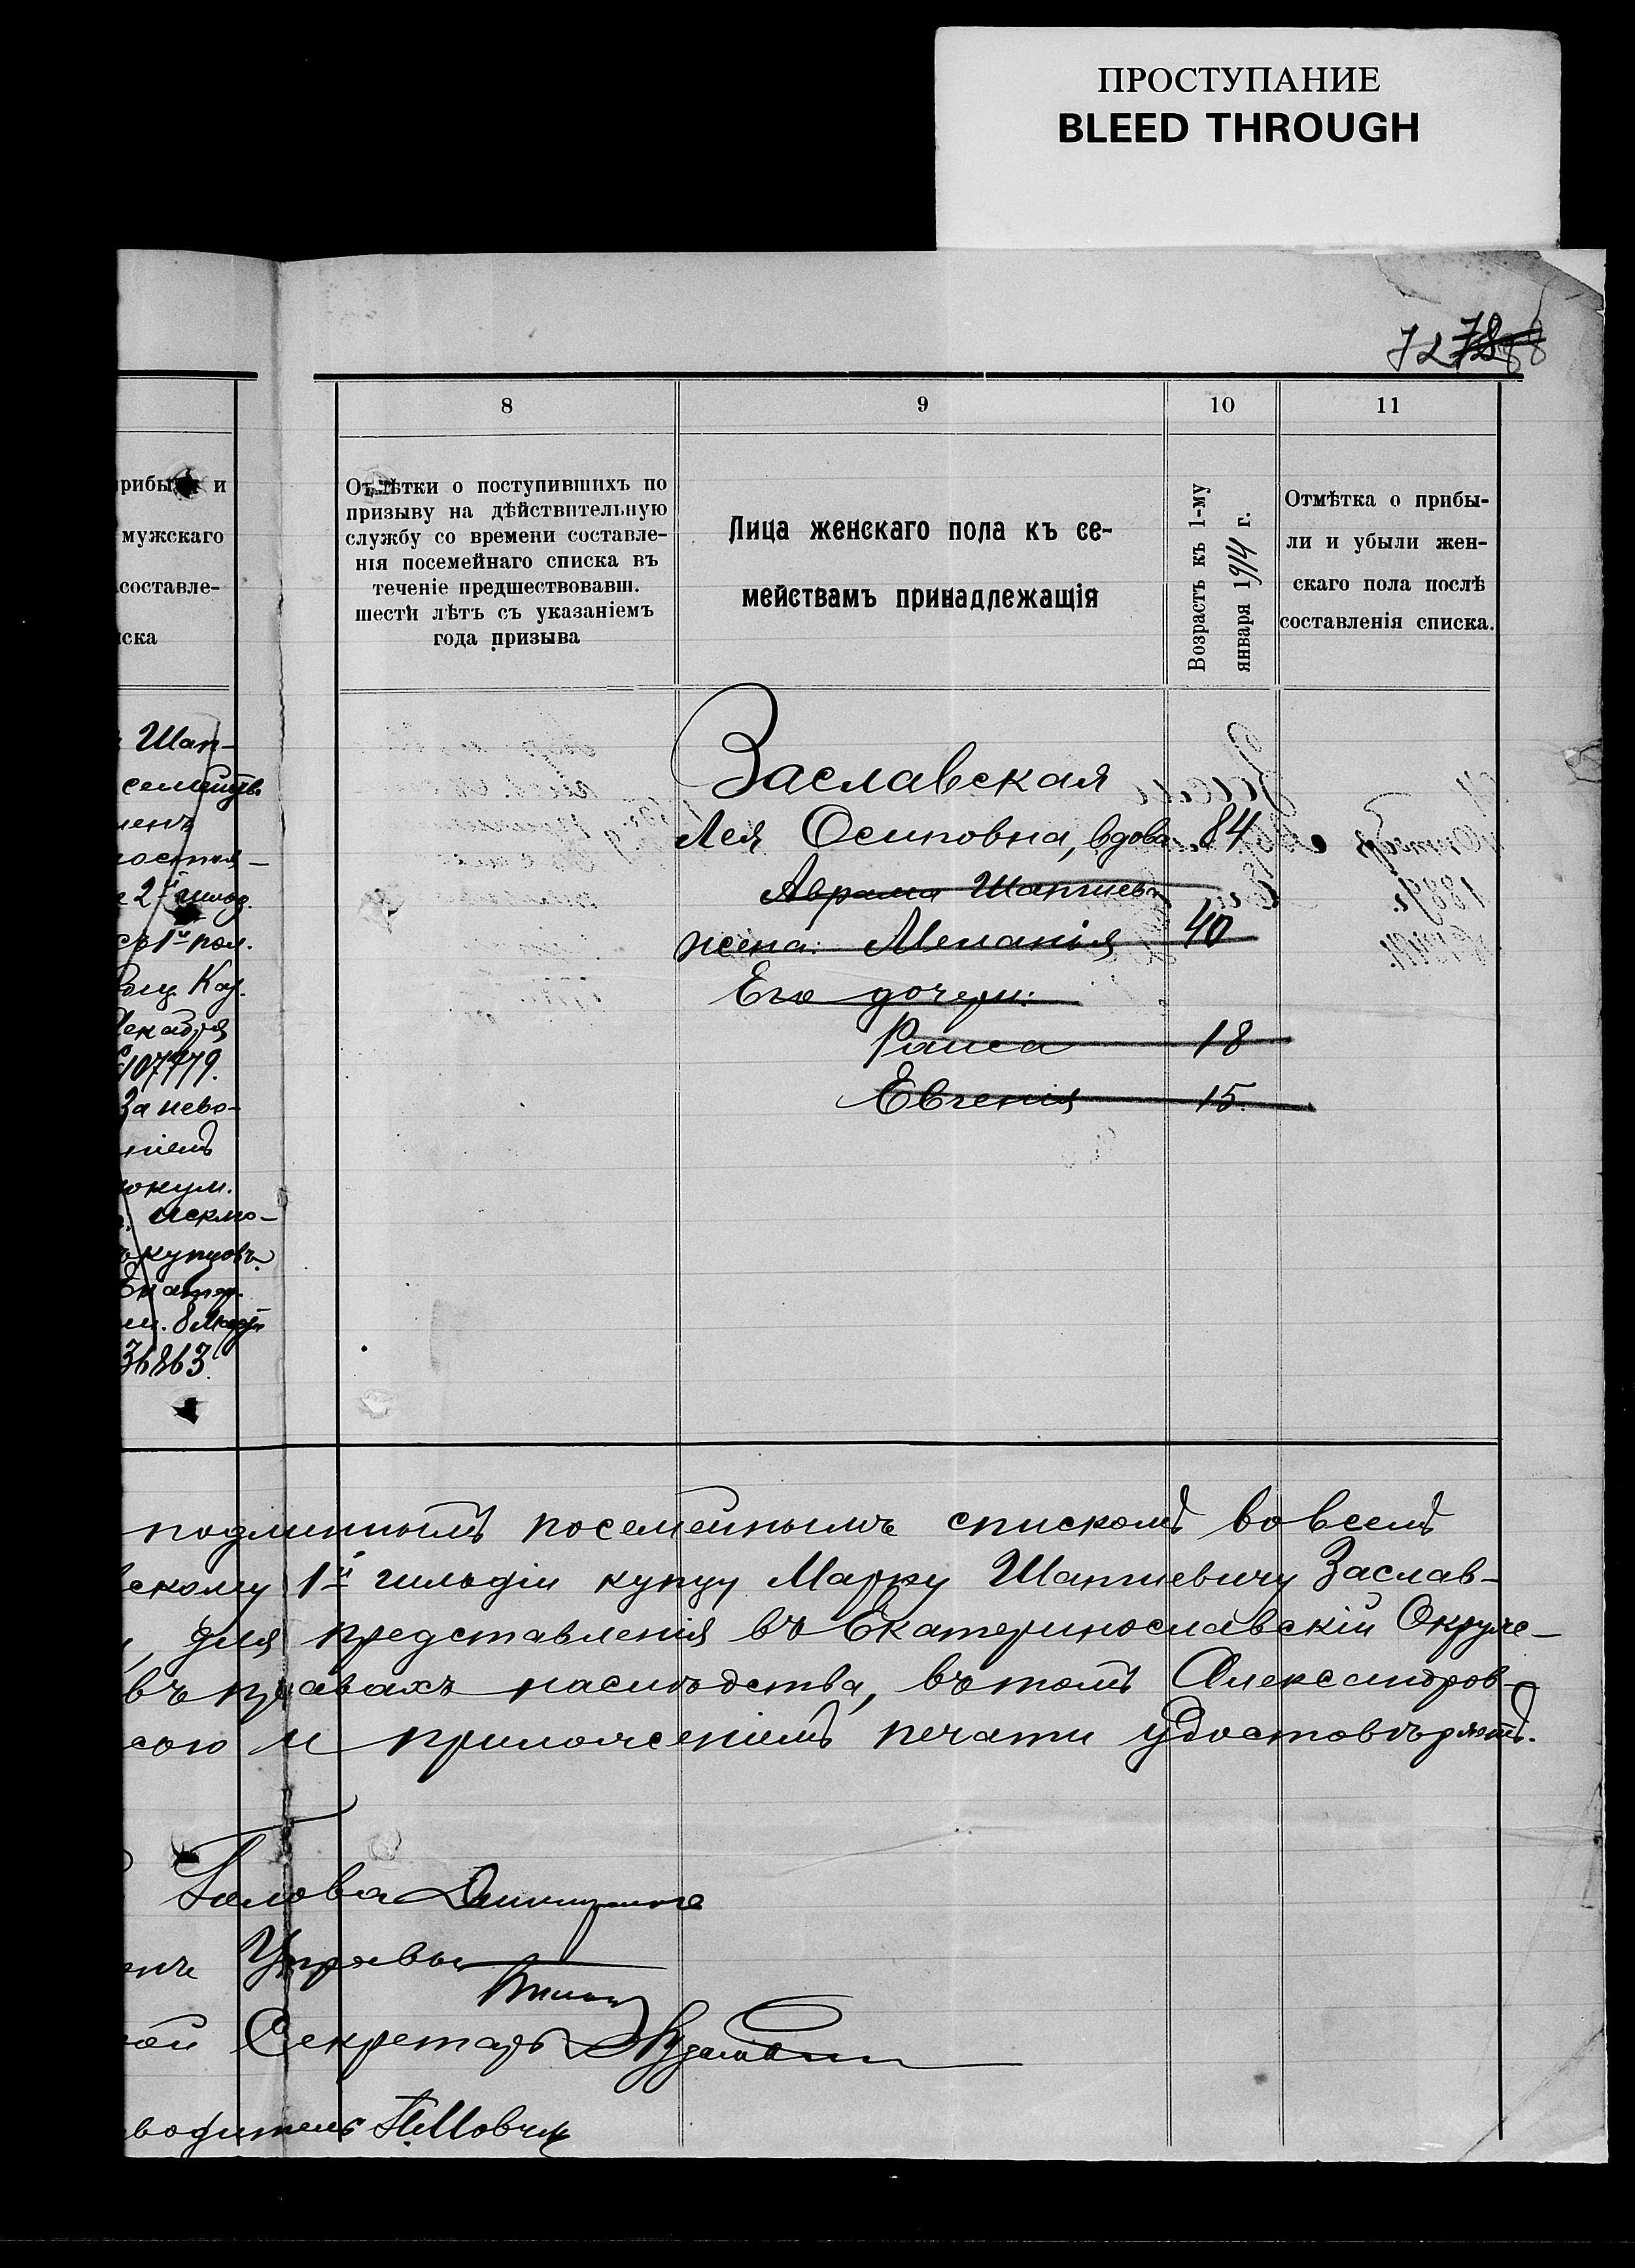 ПРОСТУПАНИЕ
BLEED THROUGH
72 78
8
9
10
11
и
мужскаго
составле-
Отмѣтки о поступившихъ по
призыву на дѣйствительную
службу со времени составле-
нія посемейнаго списка въ
теченіе предшествовавш.
шести лѣтъ съ указаніемъ
года призыва
Лица женскаго пола къ се-
мействамъ принадлежащія
Возрастъ къ 1-му
января 1914 г.
Отмѣтка о прибы-
ли и убыли жен-
скаго пола послѣ
составленія списка.
Шап-
2й
съ 1й пол.
Каз.
Декабря
107779.
За нево-
ніемъ
докум.
исклю-
купцовъ
Екатер.
36863.
Заславская
Лея Осиповна, вдова 84
Аврама Шапшев.
жена: Меланія 40
Его дочери:
Раиса 18
Евгенія 15.
подлиннымъ посемейнымъ спискомъ во всемъ
скому 1й гильдіи купцу Марку Шапшевичу Заслав-
, для представленія въ Екатеринославскій Окруж-
въ правахъ наслѣдства, въ томъ Александров-
сою и приложеніемъ печати удостовѣряетъ.
Голова
Управы
Секретарь
водитель